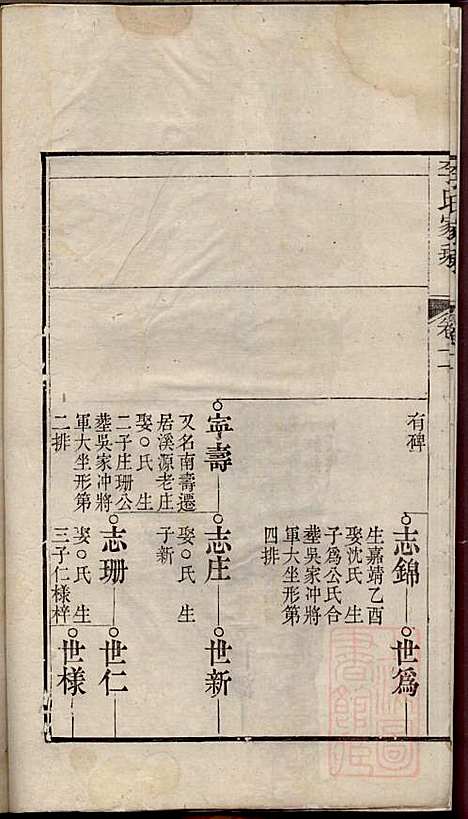 李氏家乘
卷二
有碑
志錦
生嘉靖乙酉
娶沈氏生
子爲公氏合
塟吳家冲將
軍大坐形第
四排
世爲
寧壽
又名南壽遷
居溪源老庄
娶○氏生
二子庄珊公
塟吳家冲將
軍大坐形第
二排
志庄
娶○氏生
子新
世新
志珊
娶○氏生
三子仁樣梓
世仁
世樣